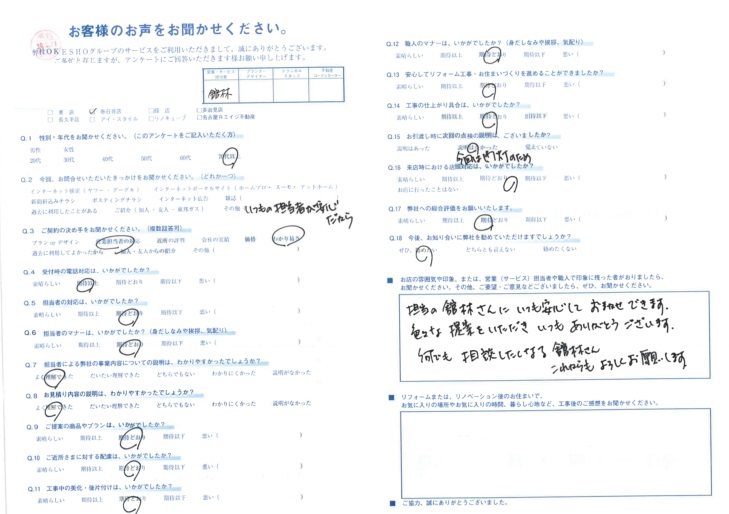 お客様のお声をお聞かせください。
HOKESHOグループのサービスをご利用いただきまして、誠にありがとうございます。
アンケートにご回答いただきます様お願い申し上げます。
舘林
Q.1 性別・年代をお聞かせください。(このアンケートをご記入いただく方)
男性 女性
20代 30代 40代 50代 60代 70代以上
Q.2 今回、お問合せいただいたきっかけをお聞かせください。(どれか一つ)
新聞折込みチラシ ポスティングチラシ インターネット広告 雑誌(
過去に利用したことがある ご紹介(個人・友人・東邦ガス) その他
いつもの担当者が安心だから
Q.3 ご契約の決め手をお聞かせください。(複数回答可)
プラン or デザイン 営業担当者の対応 流儀の評判 会社の実績 価格 わかり易さ
過去に利用してよかったから 個人・友人からの紹介 その他(
Q.4 受付時の電話対応は、いかがでしたか?
素晴らしい 期待以上 期待どおり 期待以下 悪い( )
Q.5 担当者の対応は、いかがでしたか?
素晴らしい 期待以上 期待どおり 期待以下 悪い( )
Q.6 担当者のマナーは、いかがでしたか?(身だしなみや挨拶、気配り)
素晴らしい 期待以上 期待どおり 期待以下 悪い( )
Q.7 担当者による弊社の事業内容についての説明は、わかりやすかったでしょうか?
よく理解できた だいたい理解できた どちらでもない わかりにくかった 説明がなかった
Q.8 お見積り内容の説明は、わかりやすかったでしょうか?
よく理解できた だいたい理解できた どちらでもない わかりにくかった 説明がなかった
Q.9 ご提案の商品やプランは、いかがでしたか?
素晴らしい 期待以上 期待どおり 期待以下 悪い( )
Q.10 ご近所さまに対する配慮は、いかがでしたか?
素晴らしい 期待以上 期待どおり 期待以下 悪い( )
Q.11 工事中の美化・後片付けは、いかがでしたか?
素晴らしい 期待以上 期待どおり 期待以下 悪い( )
Q.12 職人のマナーは、いかがでしたか?(身だしなみや挨拶、気配り)
素晴らしい 期待以上 期待どおり 期待以下 悪い( )
Q.13 安心してリフォーム工事・お住まいづくりを進めることができましたか?
素晴らしい 期待以上 期待どおり 期待以下 悪い( )
Q.14 工事の仕上がり具合は、いかがでしたか?
素晴らしい 期待以上 期待どおり 期待以下 悪い( )
Q.15 お引渡し時に次回の点検の説明は、ございましたか?
説明はあった 説明はなかった 覚えていない
Q.16 来店時における店頭対応は、いかがでしたか?
素晴らしい 期待以上 期待どおり 期待以下 悪い( )
お店に行ったことはない
Q.17 弊社への総合評価をお願いします。
素晴らしい 期待以上 期待どおり 期待以下 悪い( )
Q.18 今後、お知り合いに弊社を勧めていただけますでしょうか?
ぜひ、勧めたい どちらとも言えない 勧めたくない
■ お店の雰囲気や印象、または、営業(サービス)担当者や職人で印象に残った者がおりましたら、
お聞かせください。その他、ご要望・ご意見などございましたら、ぜひ、お聞かせください。
担当の舘林さんにいつも安心して おまかせできます。
色々な提案をいただき いつも ありがとうございます。
何でも 相談したくなる 舘林さん
これからも よろしくお願いします
■ リフォームまたは、リノベーション後のお住まいで、
お気に入りの場所やお気に入りの時間、暮らし心地など、工事後のご感想をお聞かせください。
■ ご協力、誠にありがとうございました。